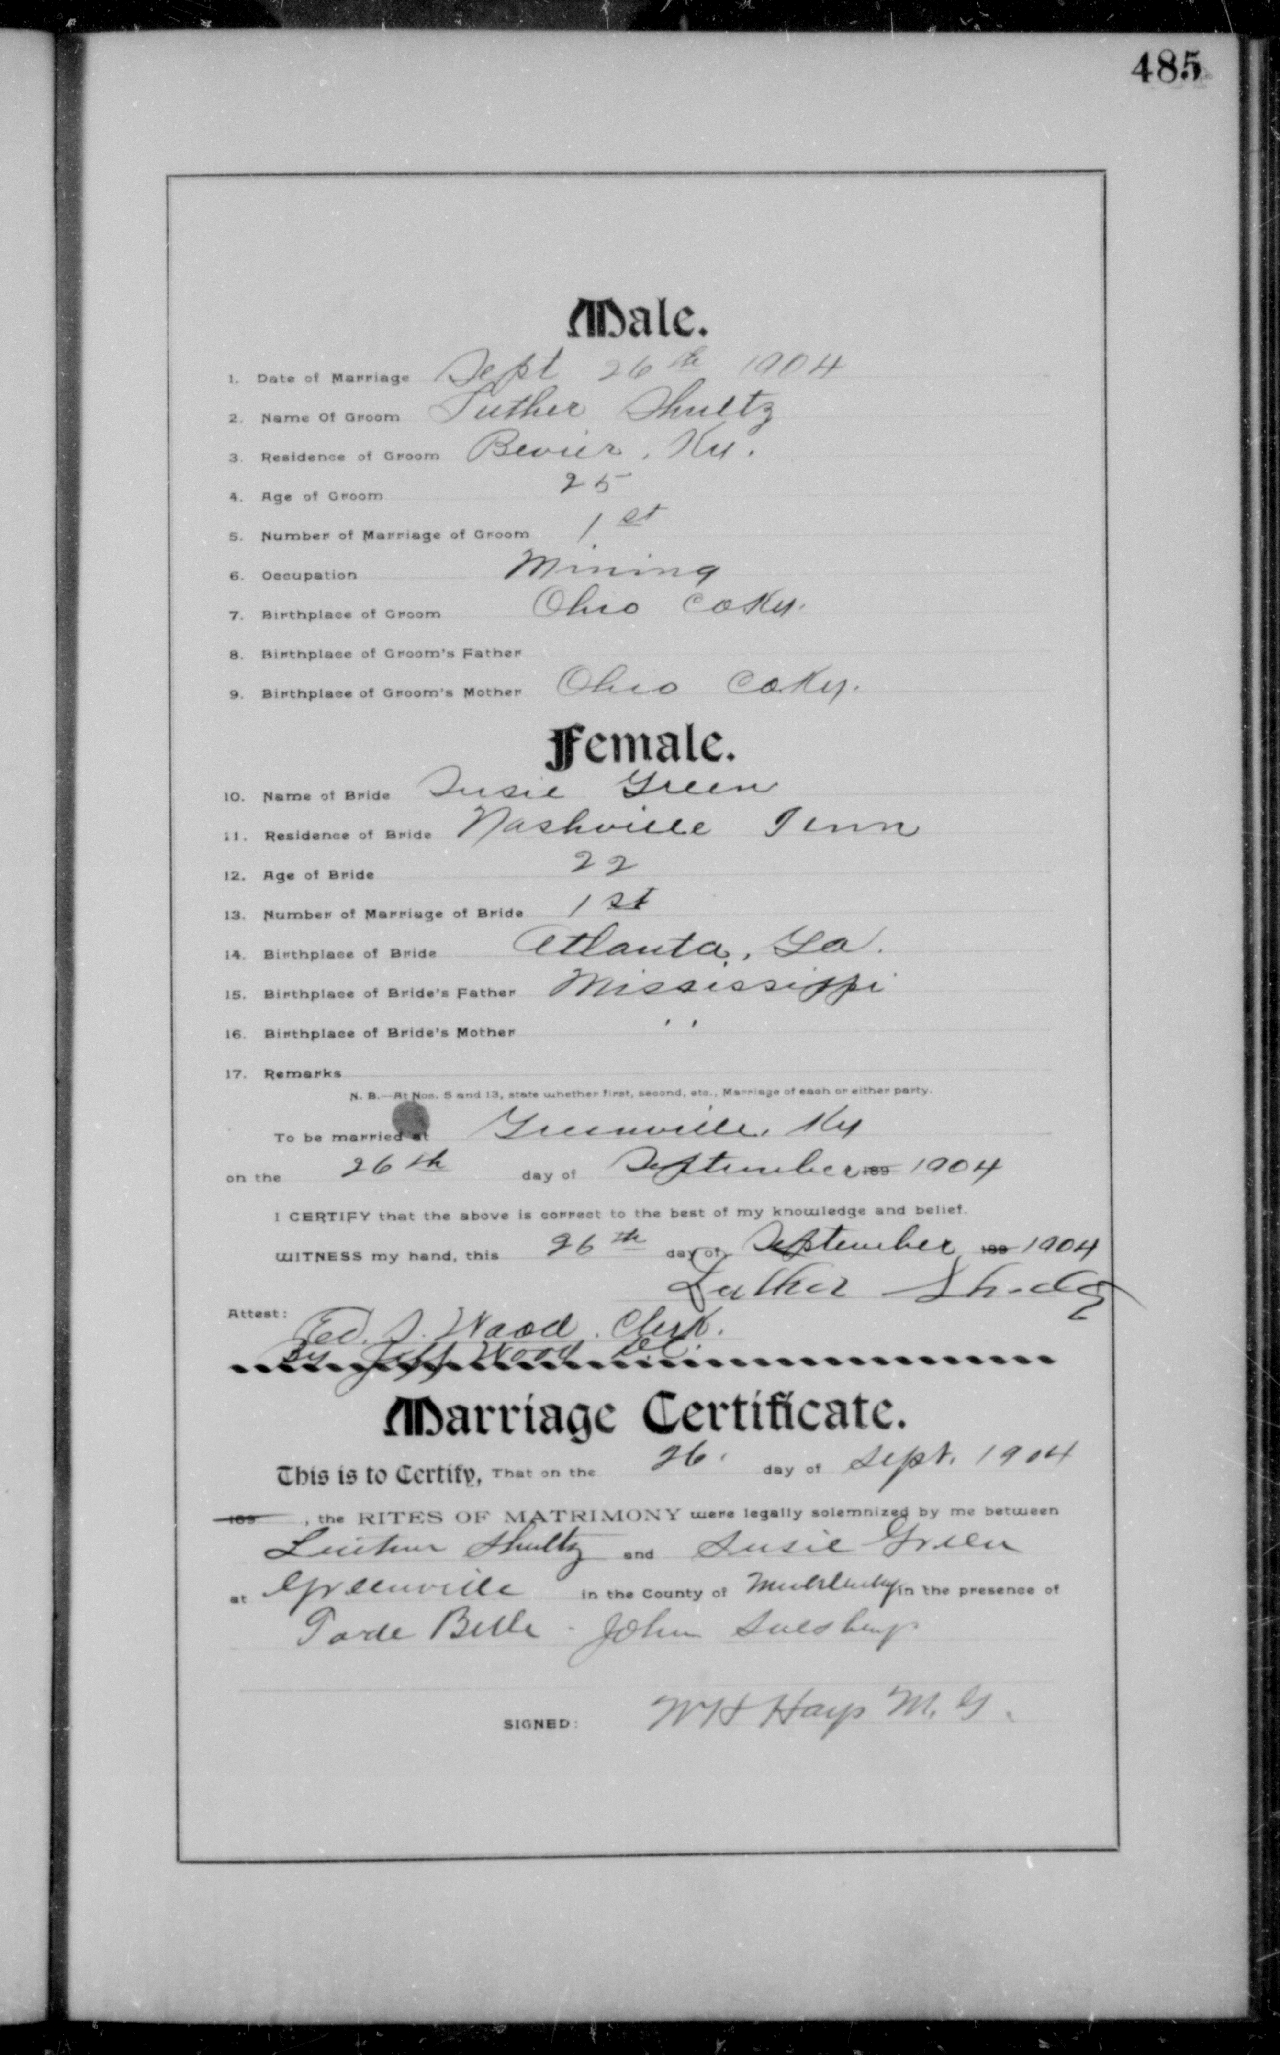 485
Male.
1. Date of Marriage Sept 26th 1904
2. Name Of Groom Luther Shultz
3. Residence of Groom Bevier, Ky.
4. Age of Groom 25
5. Number of Marriage of Groom 1st
6. Occupation Mining
7. Birthplace of Groom Ohio Co Ky.
8. Birthplace of Groom's Father
9. Birthplace of Groom's Mother Ohio Co Ky.
Female.
10. Name of Bride Susie Green
11. Residence of Bride Nashville Tenn
12. Age of Bride 22
13. Number of Marriage of Bride 1st
14. Birthplace of Bride Atlanta, Ga.
15. Birthplace of Bride's Father Mississippi
16. Birthplace of Bride's Mother " 
17. Remarks
N. B.—At Nos. 5 and 13, state whether first, second, etc., Marriage of each or either party.
To be married at Greenville, Ky
on the 26th day of September 189 1904
I CERTIFY that the above is correct to the best of my knowledge and belief.
WITNESS my hand, this 26th day of September 189 1904
Luther
Attest: Ed. S. Wood, Clerk.
By Jeff Wood D.C.
Marriage Certificate.
This is to Certify, That on the 26. day of Sept. 1904
189 , the RITES OF MATRIMONY were legally solemnized by me between
Luther Shultz and Susie Green
at Greenville in the County of Muhlenberg in the presence of
Belle John
SIGNED: W H Hays M. G.